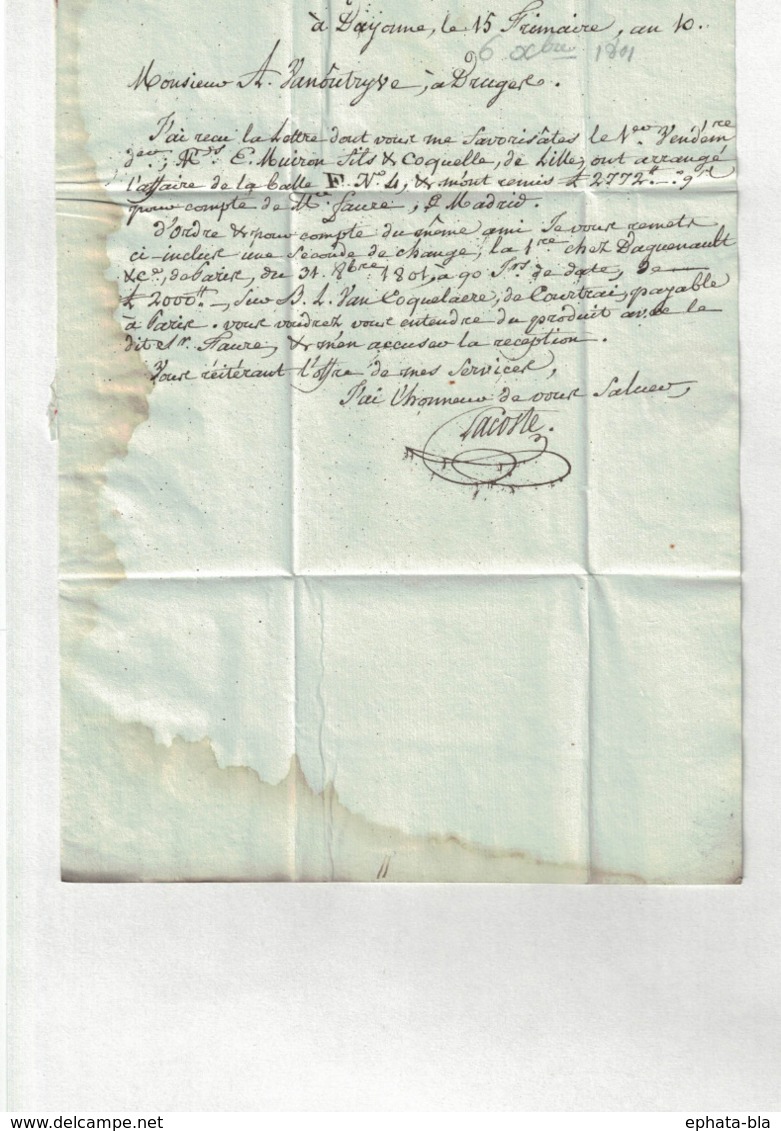 à Bayonne, le 15 Frimaire, an 10.
6 xbre 1801
Monsieur A. Vanoutryve, à Bruges.
J'ai recu la Lettre dont vous me favorisâtes le 1er. Vendemre
der; Mrs. E. Muiron fils & Coquelle, de Lille, ont arrangé
l'affaire de la balle F. No. 4, & m'ont remis £ 2772 tt
pour compte de Mr. faure, de Madrid.
d'Ordre & pour compte du même ami Je vous remets
ci-inclus une Seconde de change, la 1re chez Daguenault
& Co, de Paris, du 31. 8bre 1801, à 90 Jrs de date, De
£ 2000 tt, Sur B. L. Van Coquelaere, de Courtrai, payable
à Paris. vous voudrez vous entendre du produit avec le
dit Sr. Faure, & m'en accuser la reception.
Vous réitérant l'offre de mes Services,
J'ai l'honneur de vous Saluer,
Lacoste.
ephata-bla